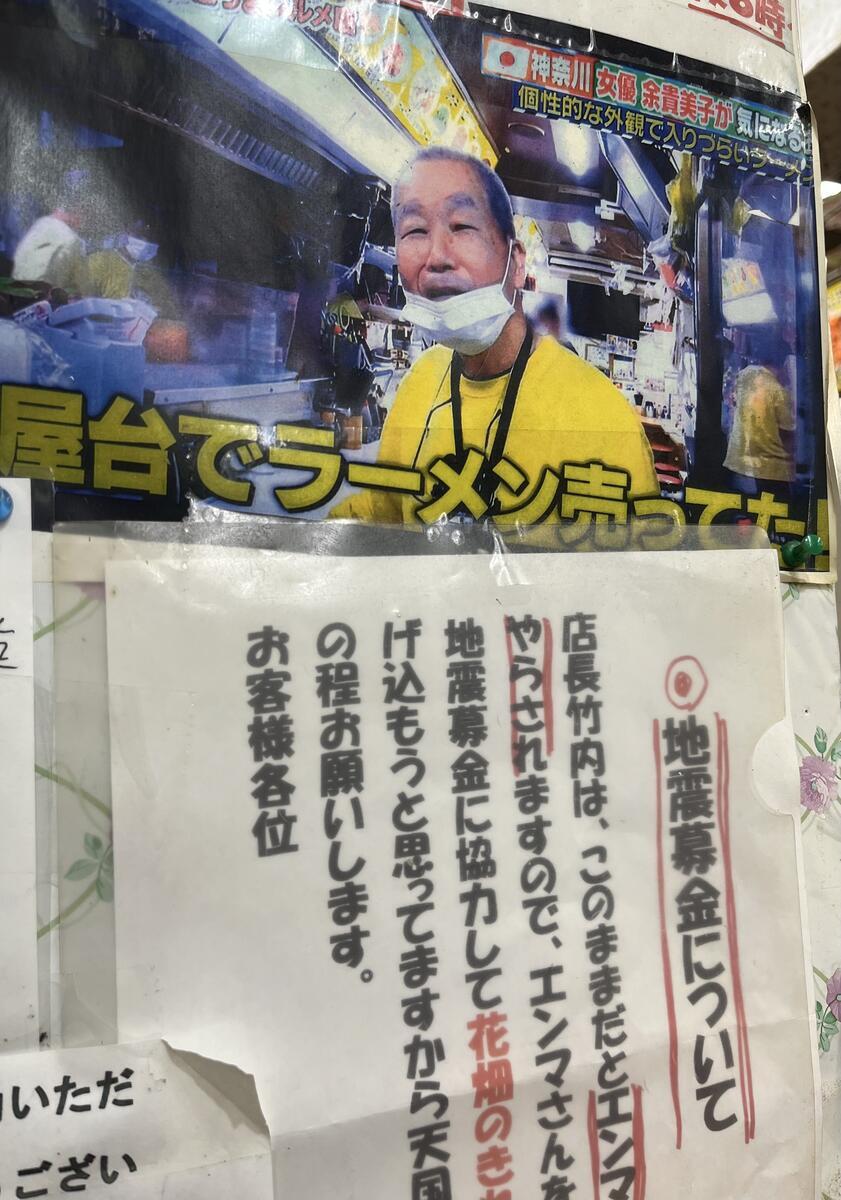 神奈川 女優 余貴美子が 気になる
個性的な外観で入りづらいラーメン
屋台でラーメン売ってた
地震募金について
店長竹内は、このままだとエンマ
やらされますので、エンマさんを
地震募金に協力して花畑のきれ
げ込もうと思ってますから天国
の程お願いします。
お客様各位
いただ
ござい